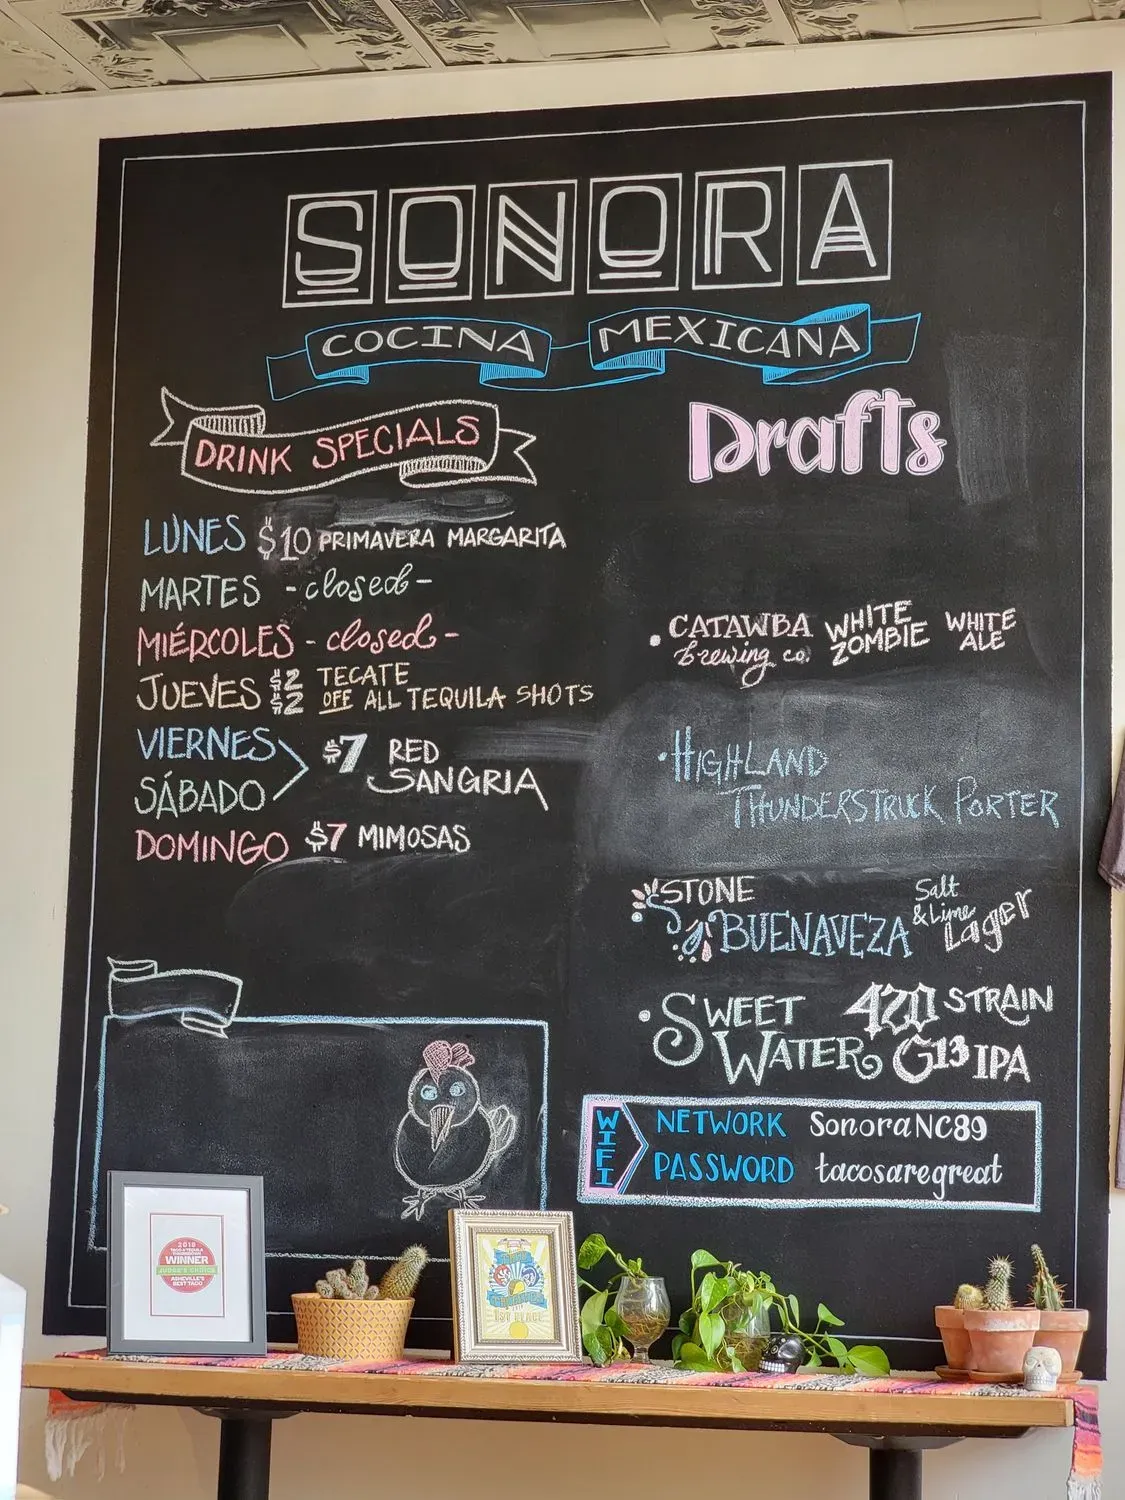 SONORA
COCINA MEXICANA
DRINK SPECIALS
LUNES $10 PRIMAVERA MARGARITA
MARTES - closed -
MIÉRCOLES - closed -
JUEVES $2 TECATE
$2 OFF ALL TEQUILA SHOTS
VIERNES
SÁBADO
$7 RED
SANGRIA
DOMINGO $7 MIMOSAS
Drafts
• CATAWBA brewing co. WHITE ZOMBIE WHITE ALE
• HIGHLAND
THUNDERSTRUCK PORTER
STONE
BUENAVEZA Salt & Lime Lager
• SWEET WATER 420 STRAIN
G13 IPA
WIFI
NETWORK SonoraNC89
PASSWORD tacosaregreat
2018
TACO & TEQUILA
WINNER
JUDGE'S CHOICE
ASHEVILLE'S
BEST TACO
1ST PLACE